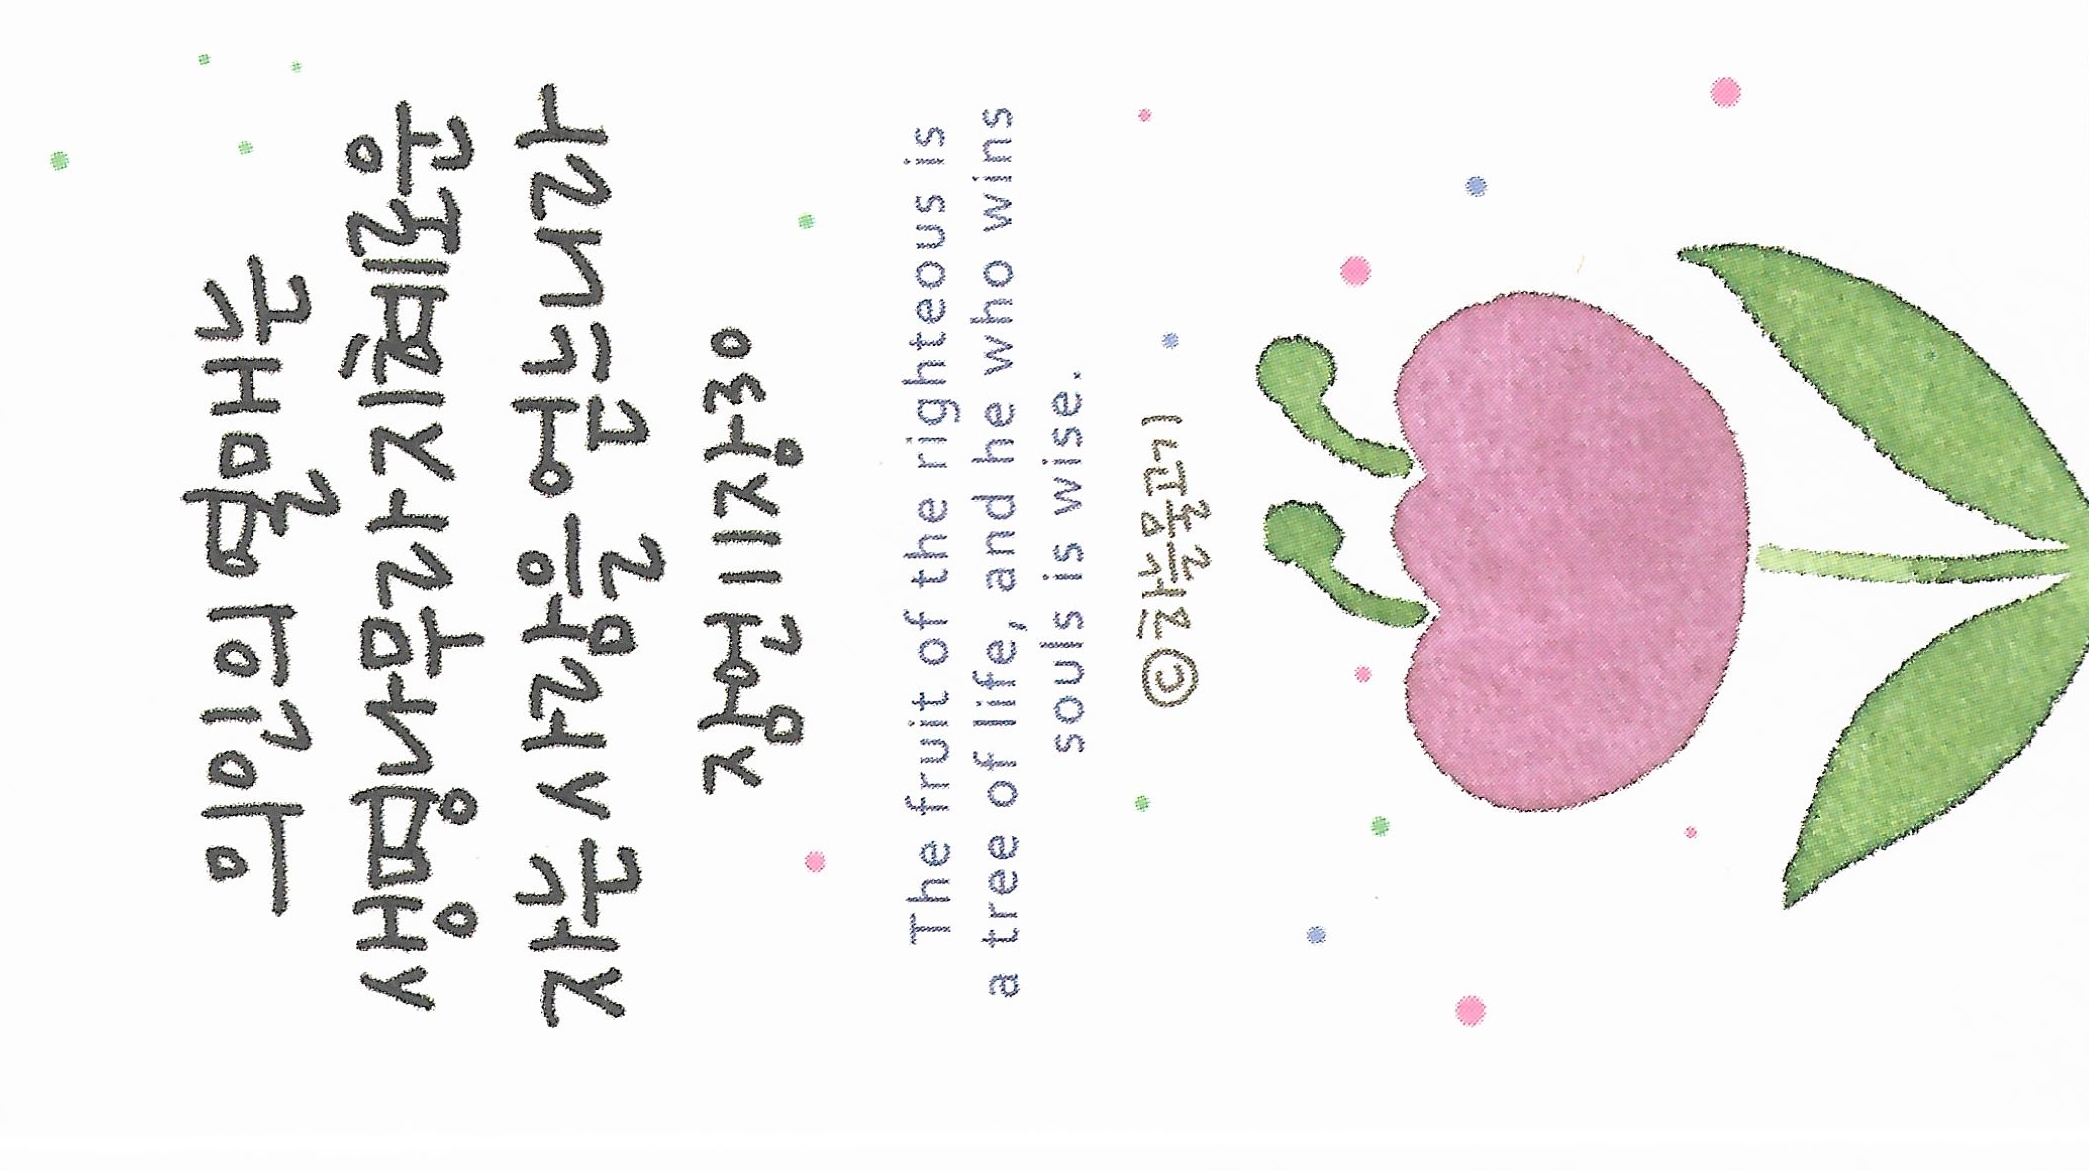 의인의 열매는
생명나무라 지혜로운
자는 사람을 얻느니라
잠언 11장 30
The fruit of the righteous is
a tree of life, and he who wins
souls is wise.
©하늘물고기